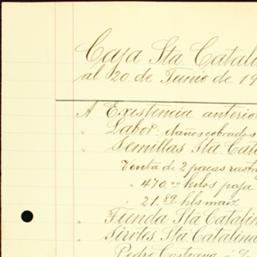 Caja Sta Catal
al 20 de Junio de 19
A Existencia anterior
" Labor. Varios cobrados
" Semillas Sta Cata
Venta de 2 pacas rastro
" 470.00 kilos paja
" 21.89 hls maiz
" Tienda Sta Catalin
" Sirvtes. Sta Catalina
Pedro